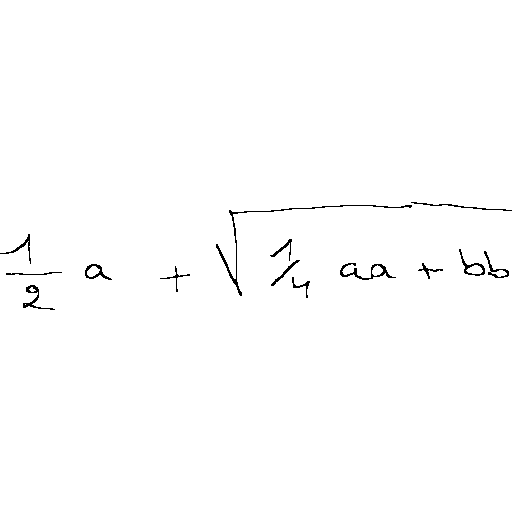 1/2 a + √(1/4 aa + bb)